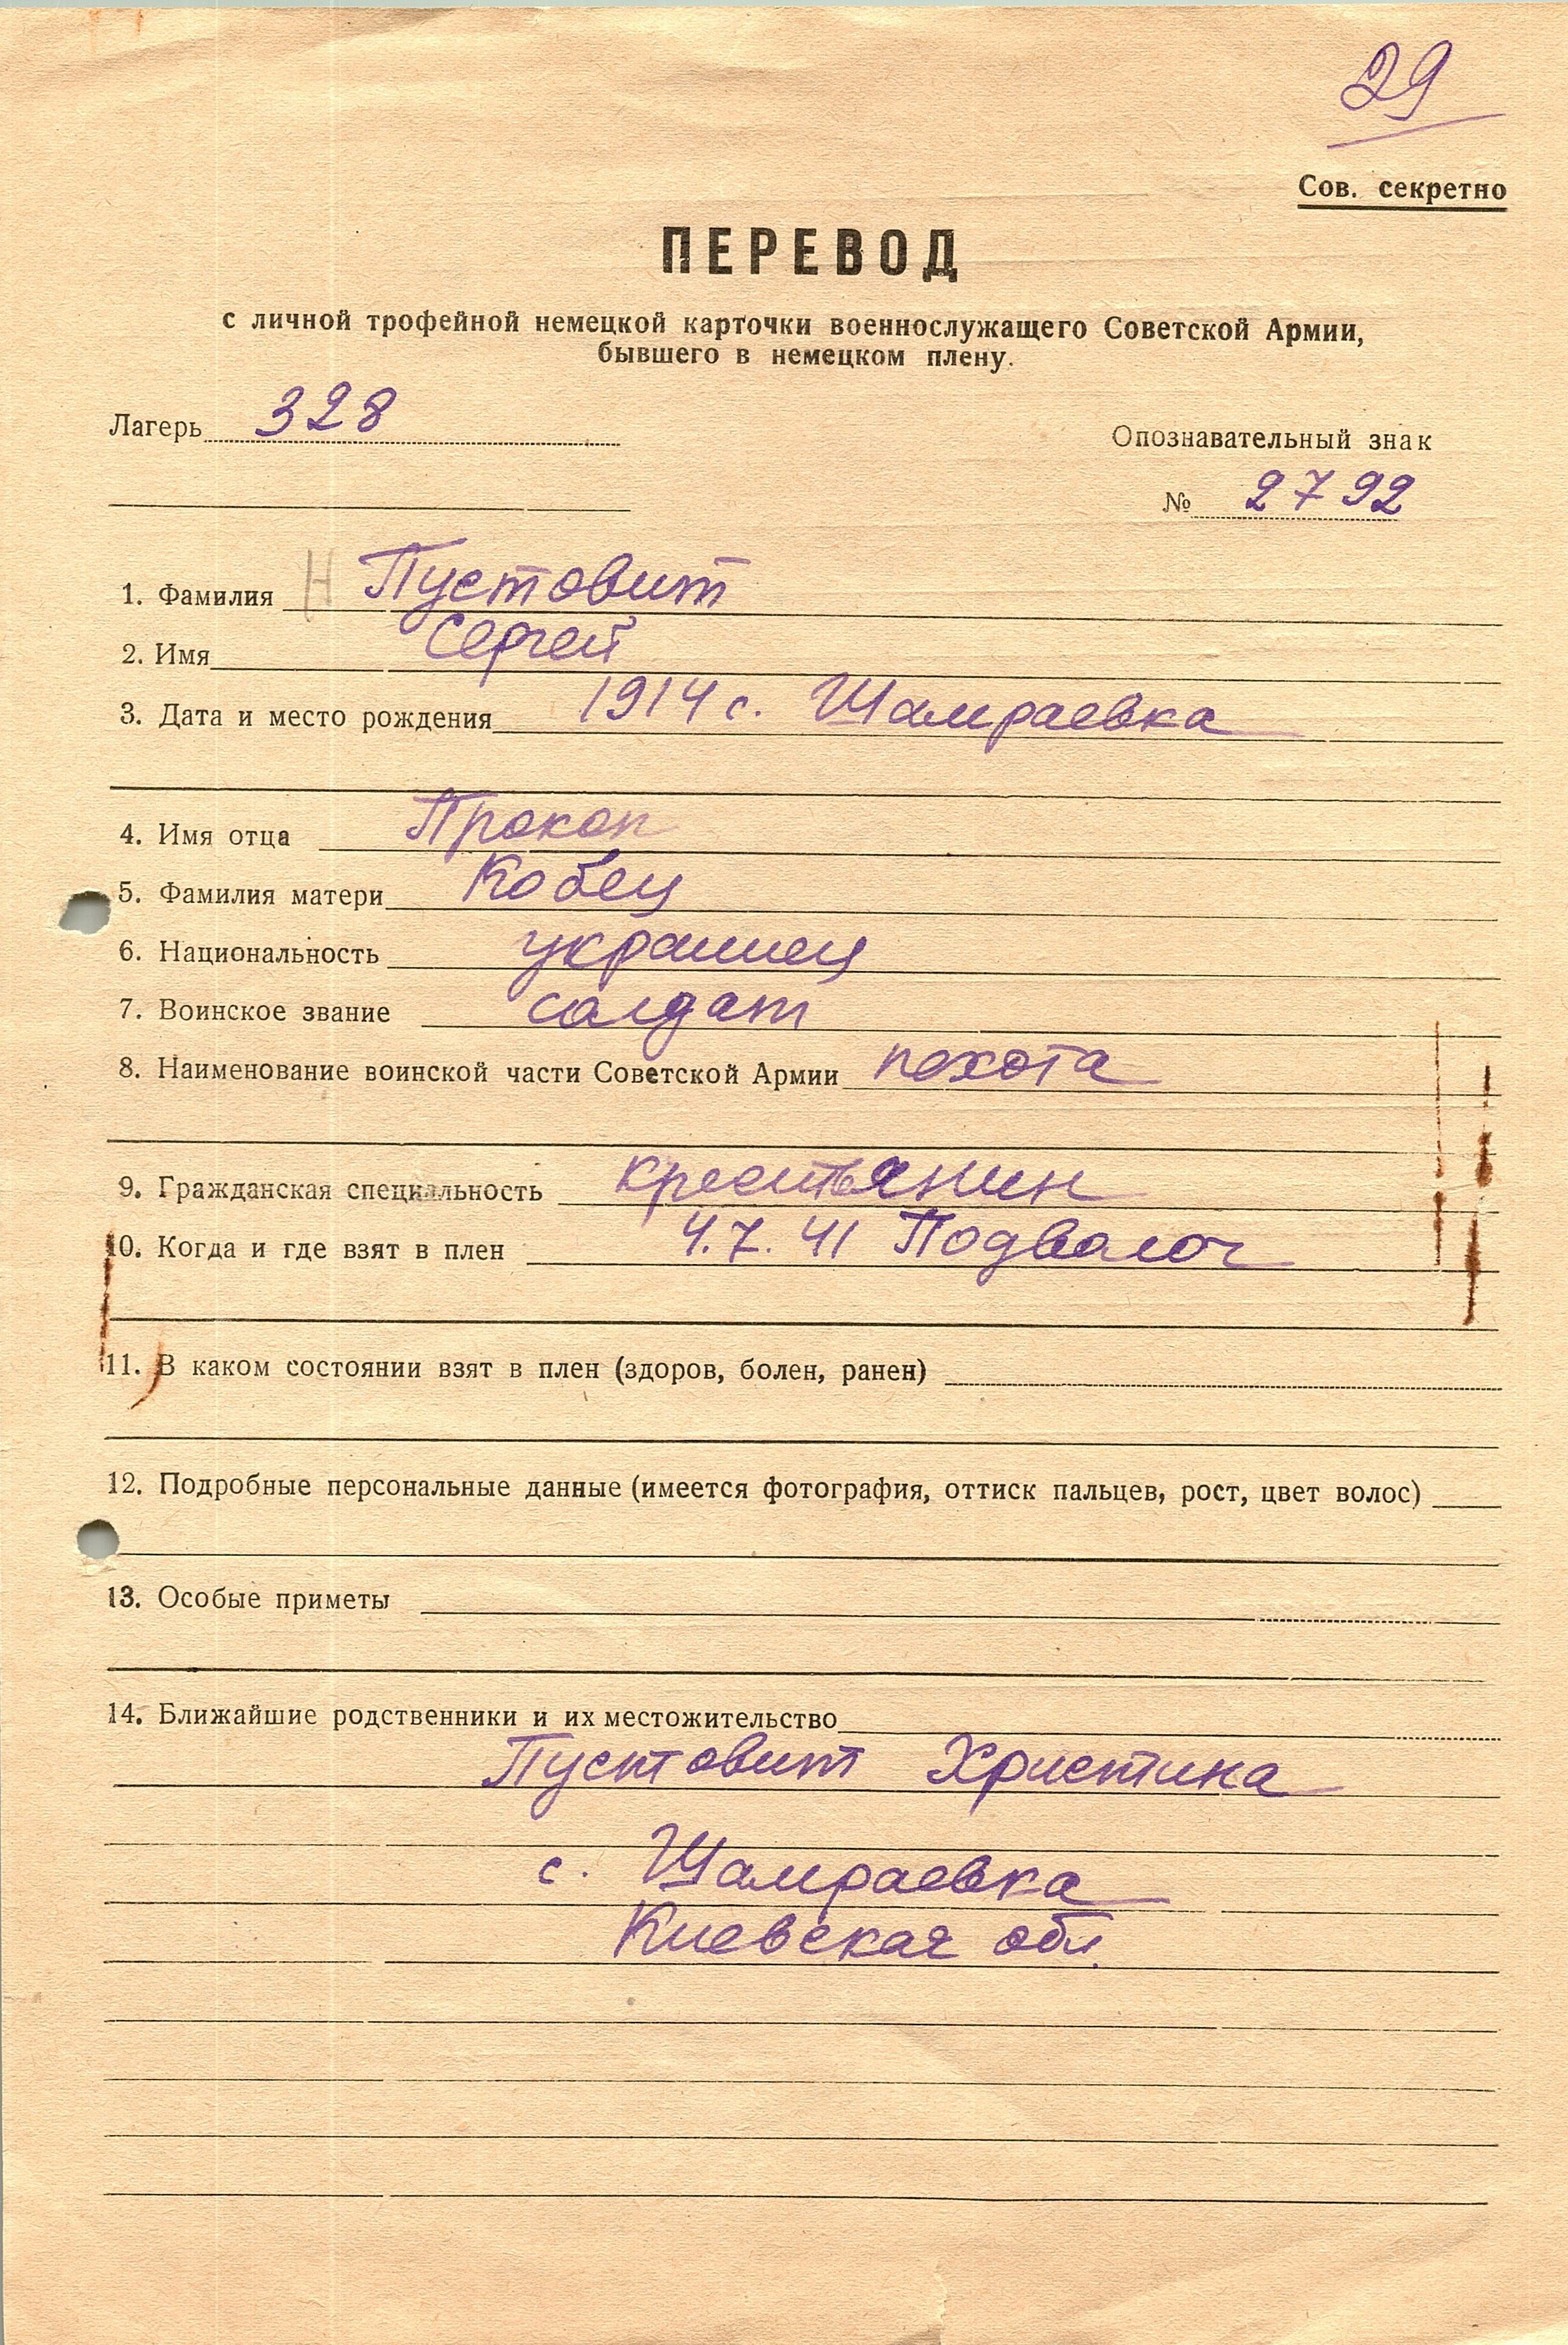 29
Сов. секретно
ПЕРЕВОД
с личной трофейной немецкой карточки военнослужащего Советской Армии,
бывшего в немецком плену.
Лагерь 328
Опознавательный знак
№ 2792
1. Фамилия Н Пустовит
2. Имя Сергей
3. Дата и место рождения 1914 с. Шамраевка
4. Имя отца Прокоп
5. Фамилия матери Кобец
6. Национальность украинец
7. Воинское звание солдат
8. Наименование воинской части Советской Армии пехота
9. Гражданская специальность крестьянин
10. Когда и где взят в плен 4.7.41 Подволоч
11. В каком состоянии взят в плен (здоров, болен, ранен)
12. Подробные персональные данные (имеется фотография, оттиск пальцев, рост, цвет волос)
13. Особые приметы
14. Ближайшие родственники и их местожительство
Пустовит Христина
с. Шамраевка
Киевская обл.